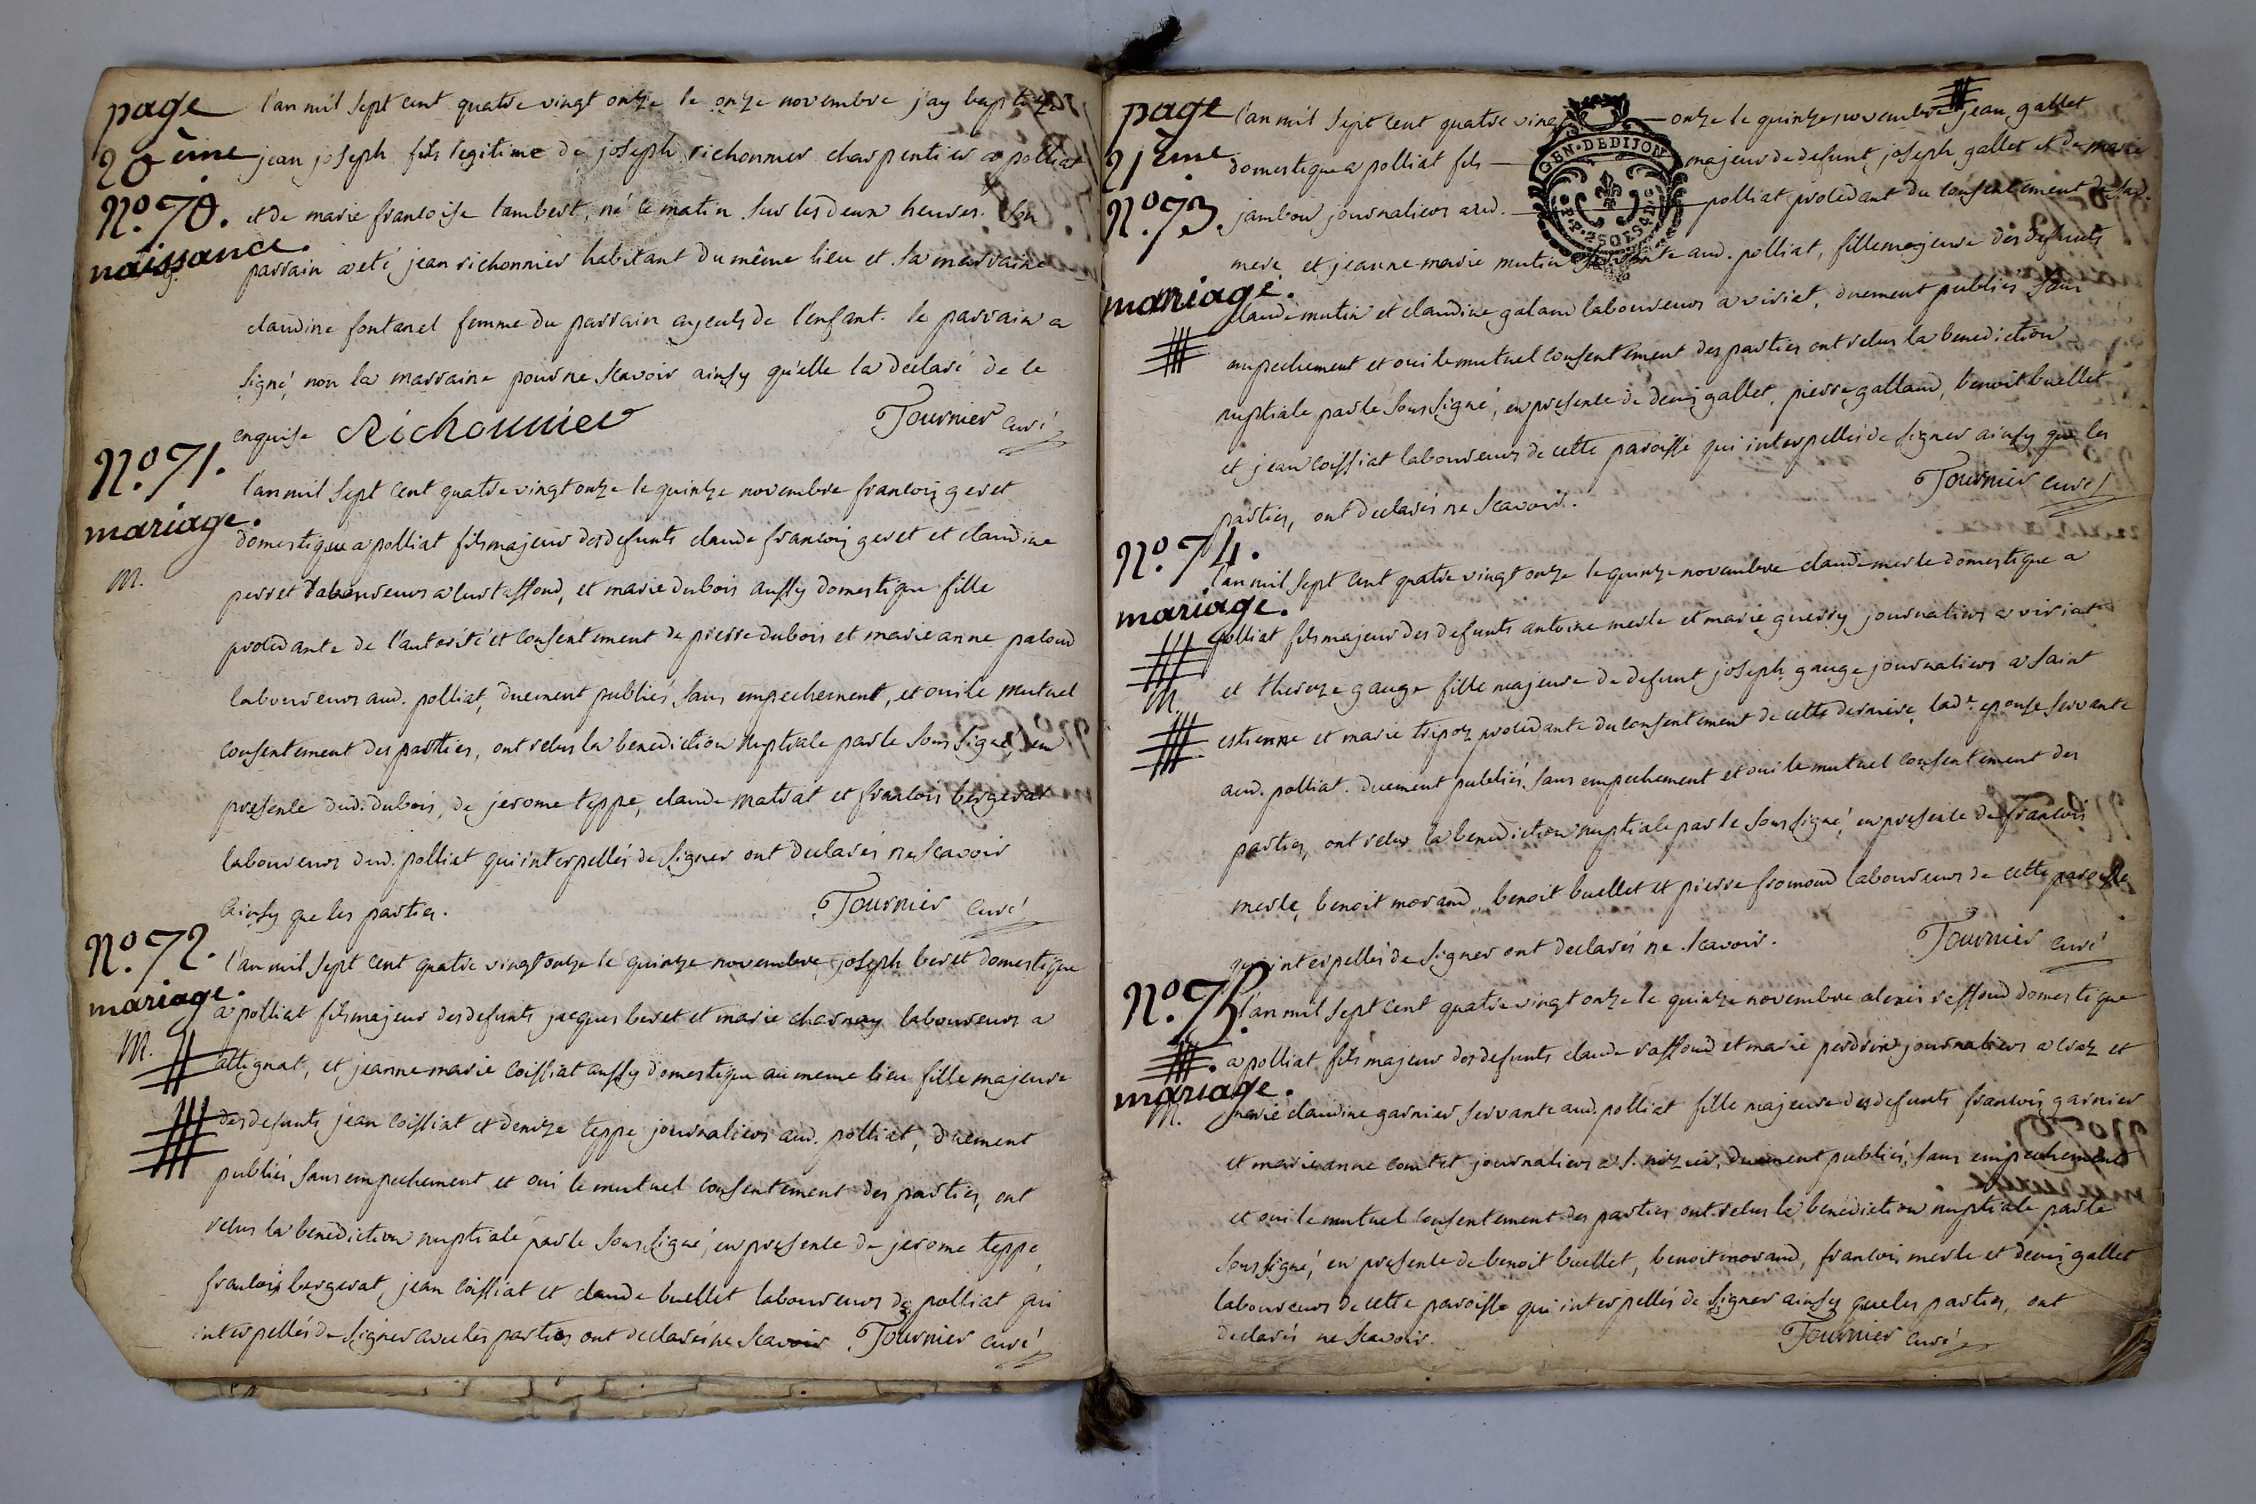 page
20ème
N.o 70.
naissance.
l'an mil sept cent quatre vingt onze le onze novembre j'ay baptizé
jean joseph fils legitime de joseph richonnier charpentier a polliat
et de marie francoise lambert, né ce matin sur les deux heures. Son
parrain a eté jean richonnier habitant du même lieu et sa marraine
claudine fontanel femme du parrain ayeuls de l'enfant. le parrain a
signé, non la marraine pour ne scavoir ainsy qu'elle la declaré de ce
enquise Richonnier Tournier curé
N.o 71.
mariage.
M.
l'an mil sept cent quatre vingt onze le quinze novembre francois geret
domestique a polliat fils majeur des defunts claude francois geret et claudine
perret laboureurs a curtaffond, et marie dubois aussy domestique fille
procedante de l'autorité et consentement de pierre dubois et marie anne paloud
laboureurs aud. polliat, duement publiés, sans empechement, et oui le mutuel
consentement des parties, ont relus la benediction nuptiale par le sous signé, en
presence dud. dubois, de jerome teppe, claude matrat et francois bergerat
laboureurs dud. polliat qui interpellés de signer ont declarés ne scavoir
ainsy que les parties. Tournier curé
N.o 72.
mariage.
M.
l'an mil sept cent quatre vingt onze le quinze novembre joseph beret domestique
a polliat fils majeur des defunts jacques beret et marie charnay laboureurs a
attignat, et jeanne marie coissiat aussy domestique au meme lieu fille majeure
des defunts jean coissiat et denize teppe journaliers aud. polliat, duement
publiés sans empechement et oui le mutuel consentement des parties, ont
relus la benediction nuptiale par le sous signé, en presence de jerome teppe,
francois bergerat, jean coissiat et claude buellet laboureurs de polliat qui
interpellés de signer avec les parties ont declarés ne scavoir Tournier curé
page
21ème
N.o 73.
mariage.
l'an mil sept cent quatre vingt onze le quinze novembre jean gallet
domestique a polliat fils majeur de defunt joseph gallet et de marie
jambon journaliers aud. polliat procedant du consentement de sad.
GEN. DE DIJON
mere, et jeanne marie mutin servante aud. polliat, fille majeure des defunts
claude mutin et claudine galand laboureurs a viriat, duement publiés sans
empechement et oui le mutuel consentement des parties ont relus la benediction
nuptiale par le sous signé, en presence de denis gallet, pierre galland, benoit buellet
et jean coissiat laboureurs de cette paroisse qui interpellés de signer ainsy que les
parties, ont declarés ne scavoir. Tournier curé
N.o 74.
mariage.
M.
l'an mil sept cent quatre vingt onze le quinze novembre claude merle domestique a
polliat fils majeur des defunts antoine merle et marie guerry journaliers a viriat
et thereze gauge fille majeure de defunt joseph gauge journaliers a saint
estienne et marie tripoz procedante du consentement de cette derniere, lad.e epouse servante
aud. polliat. duement publiés, sans empechement et oui le mutuel consentement des
parties, ont relus la benediction nuptiale par le sous signé, en presence de francois
merle, benoit morand, benoit buellet et pierre fromond laboureurs de cette paroisse
qui interpellés de signer ont declarés ne scavoir. Tournier curé
N.o 75.
mariage.
M.
l'an mil sept cent quatre vingt onze le quinze novembre alexis raffoud domestique
a polliat, fils majeur des defunts claude raffoud et marie perdrix journaliers a craz et
marie claudine garnier servante aud. polliat fille majeure des defunts francois garnier
et marie anne comtet journaliers a s. nizier, duement publiés, sans empechement
et oui le mutuel consentement des parties ont relus la benediction nuptiale par le
sous signé, en presence de benoit buellet, benoit morand, francois merle et denis gallet
laboureurs de cette paroisse qui interpellés de signer ainsy que les parties, ont
declarés ne scavoir. Tournier curé